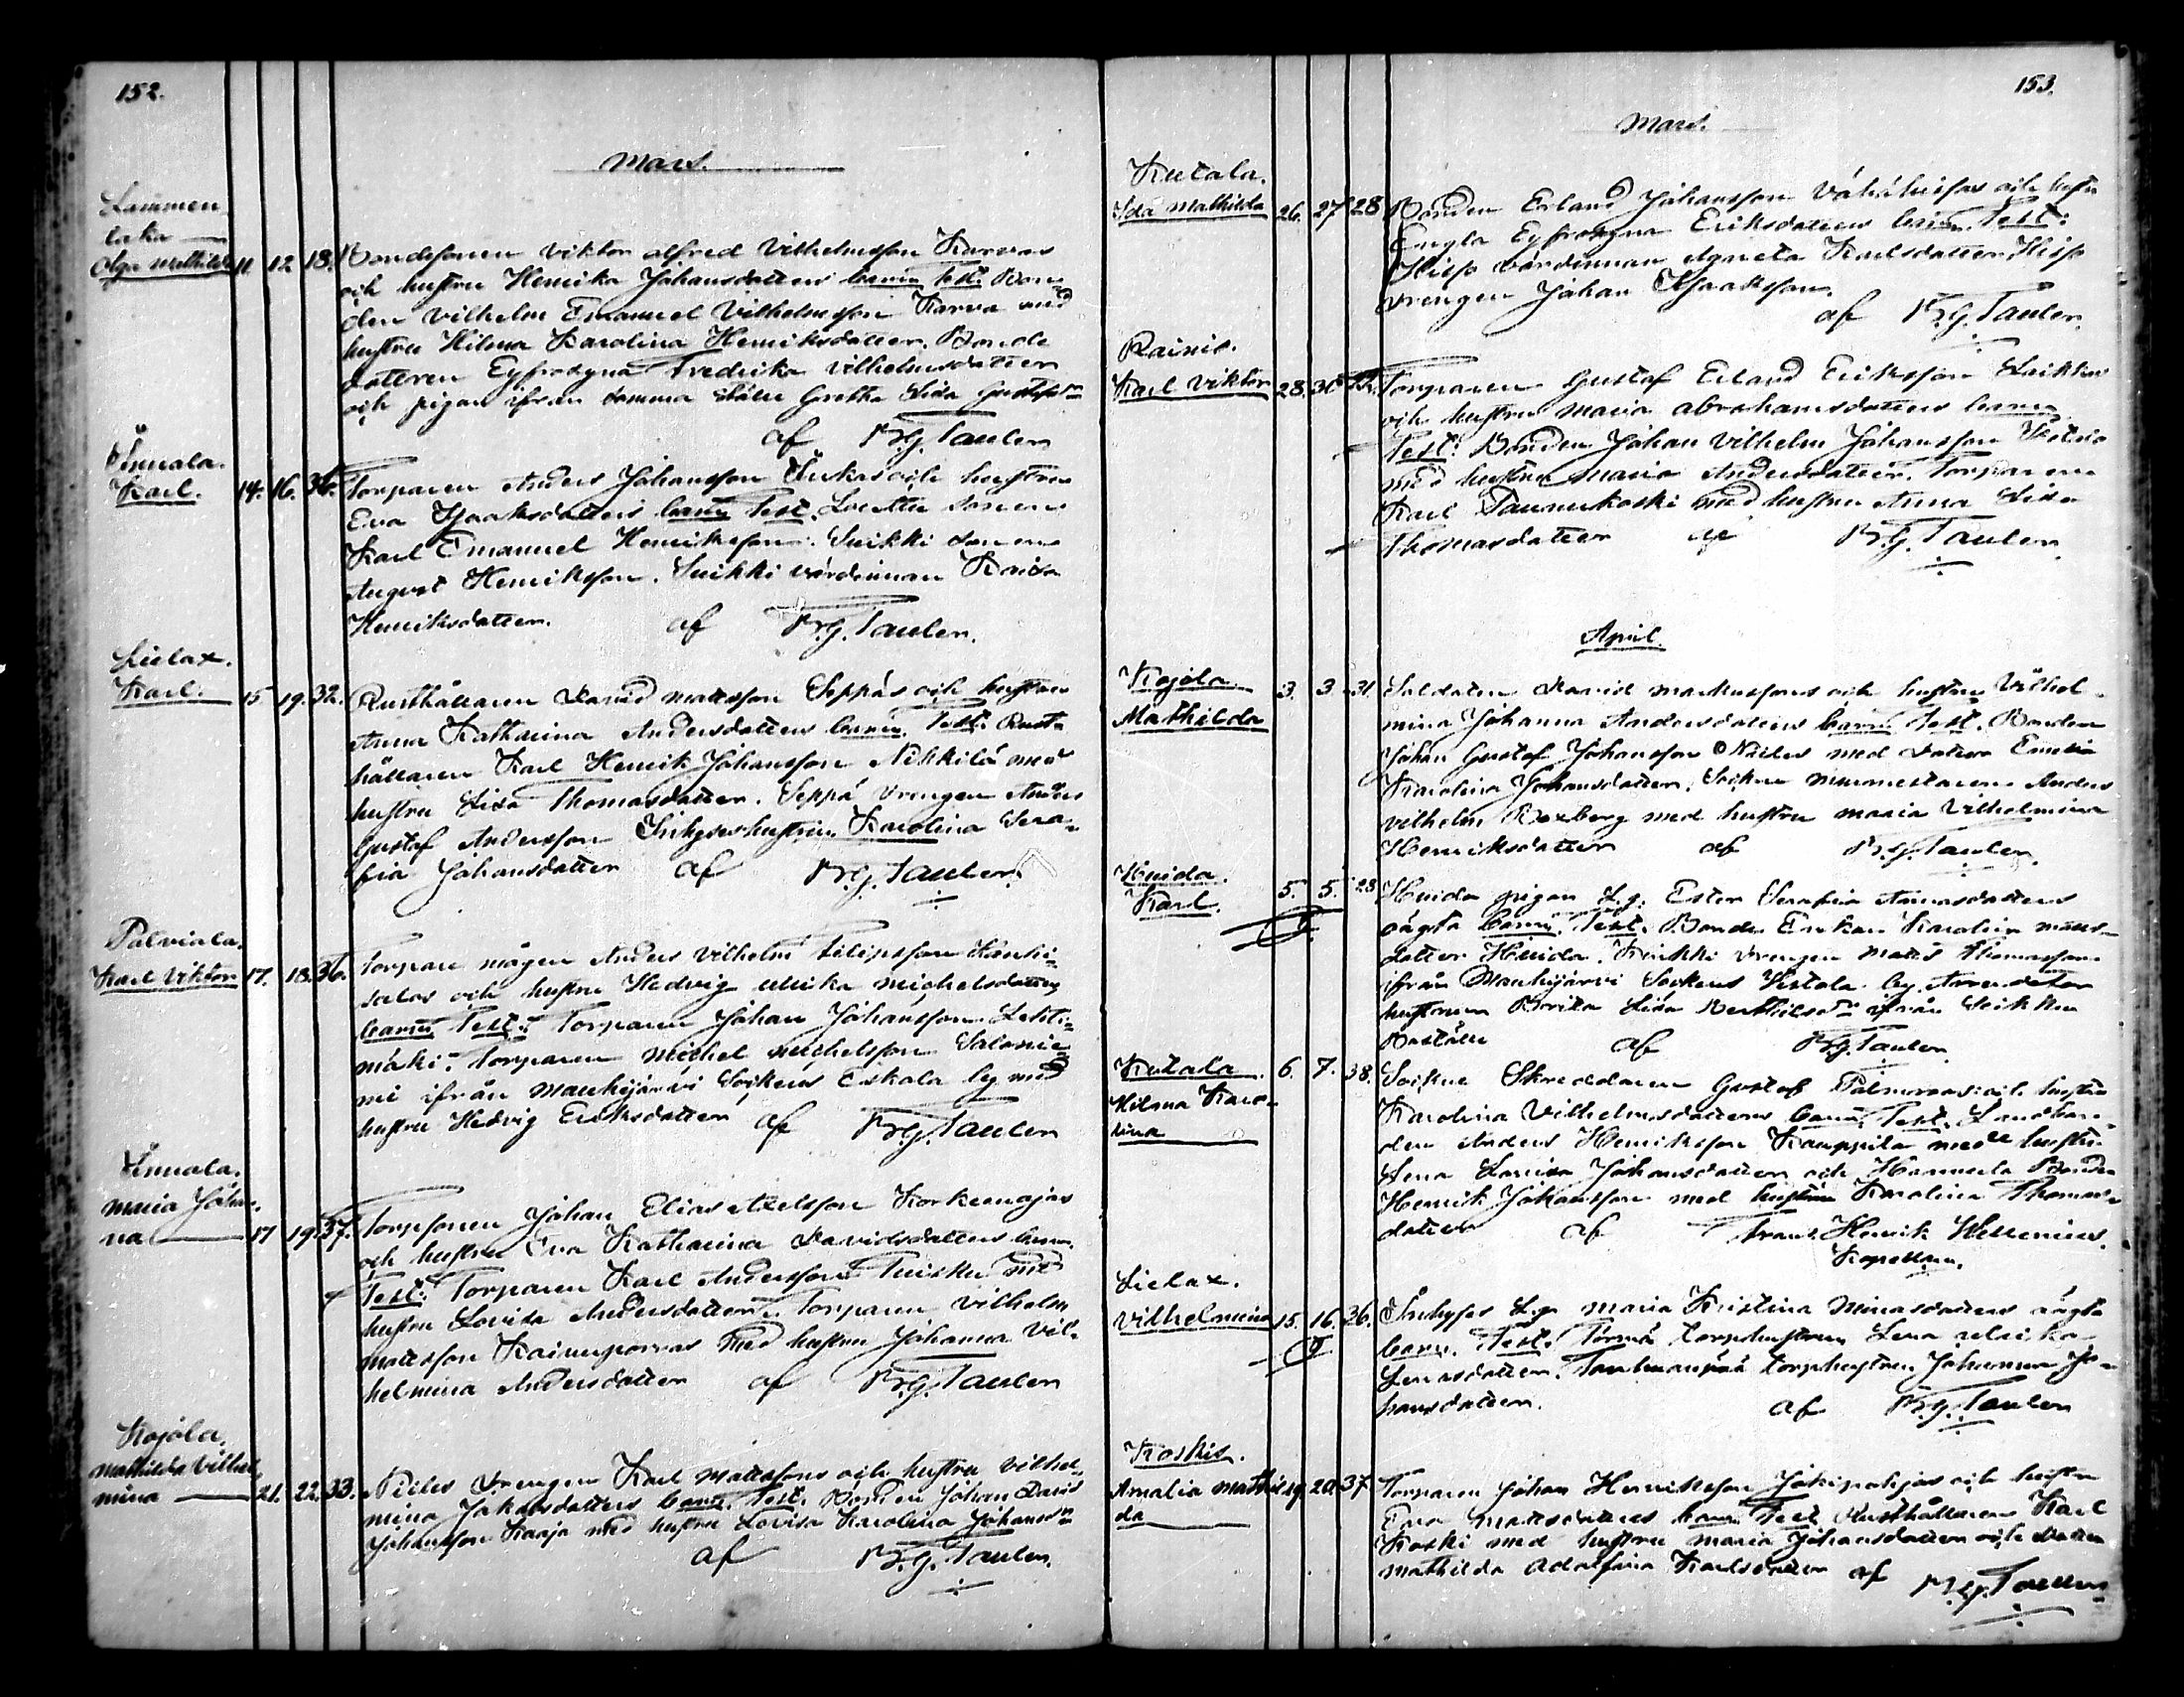 152.
Mars.
Lammen
laka
Olga Mathilda 11. 12 18. Bondesonen Viktor Alfred Vilhelmsson Karvas
och hustru Henrika Johansdotters barn Test. Bon-
den Vilhelm Emanuel Vilhelmsson Karva med
hustru Hilma Karolina Henriksdotter. Bonde
dottren Eyfrosyna Fredrika Vilhelmsdotter
och pigan ifrån samma ställe Gretha Lisa
af F.G. Taulér
Innala.
Karl. 14. 16. 36. Torparen Anders Johansson och hustru
Eva Isaaksdotters barn Test. sonen
Karl Emanuel Henriksson. Suikki sonen
August Henriksson. Suikki värdinnan Kaisa
Henriksdotter. af F.G. Taulér.
Lielax.
Karl. 15 19. 32. Rusthållaren David Mattsson Seppäs och hustru
Anna Katharina Andersdotters barn. Test. Rust-
hållaren Karl Henrik Johansson Nikkilä med
hustru Lisa Thomasdotter. Seppä drengen Anders
Gustaf Andersson Inhyseshustrun Karolina Sera-
fia Johansdotter af F.G. Taulér.
Palviala.
Karl Viktor 17. 18. 36. Torpare mågen Anders Vilhelm Filipsson
och hustru Hedvig Ulrika Michelsdotters
barn Test: Torparen Johan Johansson
mäki. Torparen Michel Michelsson Salonie-
mi ifrån Mouhijärvi Sockens Eskola by med
hustru Hedvig Eriksdotter af F.G. Taulér
Innala.
Maria Johan-
na 17 19. 37. Torpsonen Johan Elias Axelsson Korkeenojas
och hustru Eva Katharina Davidsdotters barn.
Test: Torparen Karl Andersson Tuisku med
hustru Lovisa Andersdotter. Torparen Vilhelm
Mattsson med hustru Johanna Vil-
helmina Andersdotter af F.G. Taulér
Kojola.
Mathilda Vilhel-
mina 21. 22. 33. drengen Karl Mattssons och hustru Vilhel-
mina Jakobsdotters barn. Test. Bonden Johan David
Johansson Kaaja med hustru Lovisa Karolina
af F.G. Taulér.
153.
Mars.
Kutala.
Ida Mathilda 26. 27 28 Bonden Erland Johansson och hustru
Engla Eyfrosyna Eriksdotters barn. Test:
värdinnan Agneta Karlsdotter
drengen Johan Isaaksson.
af F.G. Taulér.
Rainio.
Karl Viktor 28. 30 Torparen Gustaf Erland Eriksson
och hustru Maria Abrahamsdotters barn
Test: Bonden Johan Vilhelm Johansson
med hustru Maria Andersdotter. Torparen
Karl med hustru Anna Lisa
Thomasdotter af F.G. Taulér.
April.
Kojola.
Mathilda 3. 3. 31. Soldaten David Markussons och hustru Vilhel-
mina Johanna Andersdotters barn Test. Bonden
Johan Gustaf Johansson med dotter Emelia
Karolina Johansdotter. Socken murmestaren Anders
Vilhelm Boxberg med hustru Maria Vilhelmina
Henriksdotter af F.G. Taulér.
Huida.
Karl. 5. 5. 28 Huida pigan L.g. Ester Serafia
oägta barn. Test. Bonde Enkan Karolina Matts-
dotter Huida. drengen Matts Thomasson
ifrån Mouhijärvi Sockens by. Arrendator
hustrun Brita Lisa ifrån
Boställe af F.G. Taulér.
Kutala. 6. 7. 38.
Hilma Karo-
lina Socken Skreddaren Gustaf Palmroos och hustru
Karolina Vilhelmsdotters barn. Test. Landbon-
den Anders Henriksson Kauppila med hustru
Lena Lovisa Johansdotter och Hannula Bonden
Henrik Johansson med hustrun Karolina Thomas-
dotter af Frans Henrik Hellenius.
Kapellan.
Lielax.
Vilhelmina 15. 16. 26. Inhyses L.g. Maria Kristina oägta
barn. Test. Törmä torphustrun Lena Ulrika
torphustrun Johanna Jo-
hansdotter. af F.G. Taulér
Koskis.
Amalia Mathil-
da 19. 20. 37 Torparen Johan Henriksson och hustru
Eva Mattsdotters barn Test. Rusthållaren Karl
Koski med hustru Maria Johansdotter och dotter
Mathilda Adolfina Karlsdotter af F.G. Taulér.